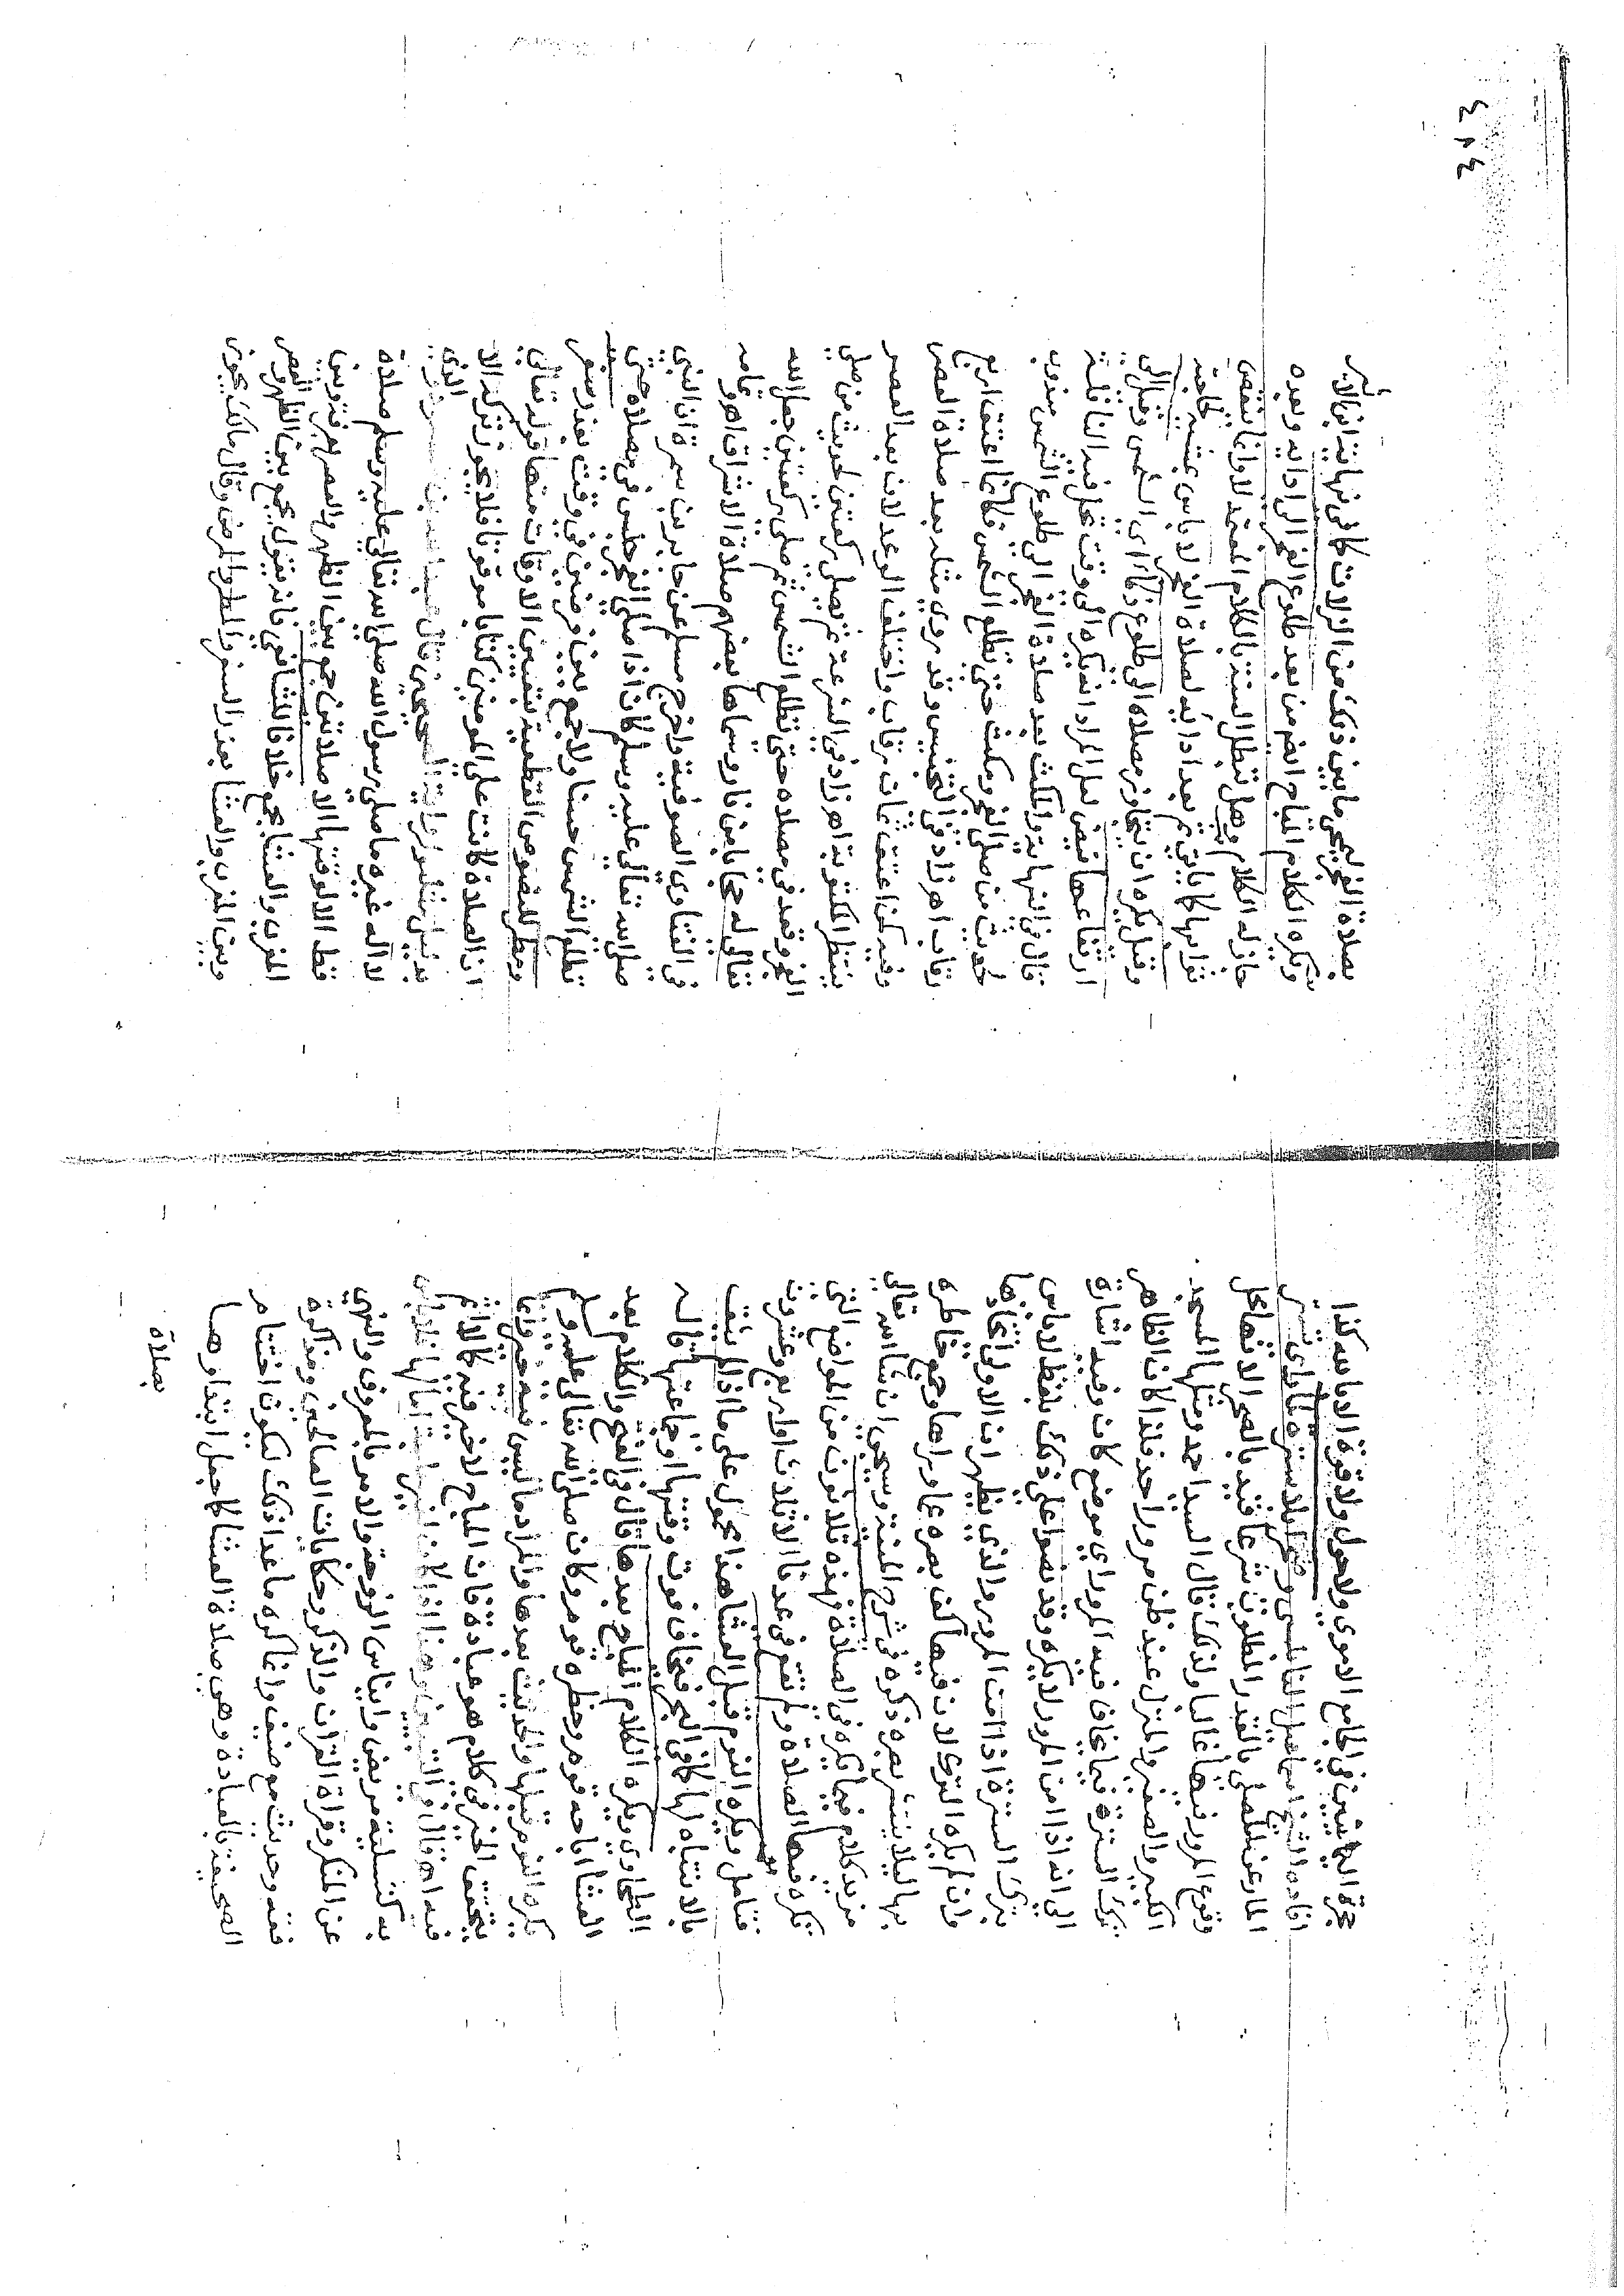 الحبشيين في الجامع الاموي ولا حول ولا قوة الا بالله كذا
افاده الشيخ اسماعيل النابلسي بلا سترة
المار عن المصلي بالقدر شرعا قيد بالصحرا لانها محل
وقوع المرور فيها غالبا ولذلك قال السيد احمد ومثلها المسجد
الكبير والصغير والمنزل عند ظن مرور احد فلذا كان الظاهر
ترك السترة فيما يخاف فيه المرور اي موضع كان وفيه اشارة
الى انه اذا امن المرور لا يكره وقد نصوا على ذلك بلفظ لا باس
بترك السترة اذا امن المرور والذي يظهر ان الاولى اتخاذها
وان لم يكره الترك لان فيها كف بصره عما وراها وجمع خاطره
بها ليلا ينتشر بصره ذكره في شرح المنية وسيجي ان شا الله تعالى
مزيد كلام فيما يكره في الصلاة فهذه ثلاثون من المواضع التي
تكره فيها الصلاة ولم تقع في عدنا الا ثلاث او اربع وعشرون
فتامل ويكره النوم قبل العشا هذا محمول على ما اذا لم يثق
بالانتباه لها كما في البحر فخاف فوت وقتها او جماعتها قاله
الطحاوي ويكره الكلام المباح بعدها قال في الفتح والكلام بعد
العشا اباحه قوم وحظره قوم وكان صلى الله تعالى عليه وسلم
يكره النوم قبلها والحديث بعدها والمراد ما ليس فيه خير وانما
يتحقق الخير في كلام هو عبادة فان المباح لا خير فيه كما لا اثم
فيه اهـ قال في وهذا اذا كان
به كتسلية مريض وايناس الزوجة والامر بالمعروف والنهي
عن المنكر وقراة القران والذكر وحكايات الصالحين ومذاكرة
فقه وحديث مع ضيف وانما كره ما عدا ذلك ليكون اختتام
الصحيفة بالعبادة وهي صلاة العشا كما جعل ابتداوها
بصلاة
بصلاة الفجر ليمحى ما بين ذلك من الزلات كما في نهاية ابن الاثير
ويكره الكلام المباح ايضا من بعد طلوع الفجر الى ادايه وبعده
وهل تبطل السنة بالكلام المعتمد لا وانما ينقص
ثوابها كما ياتي ثم بعد ادايه لصلاة الفجر لا باس بمشيه لحاجته
وقيل يكره ان يتجاوز مصلاه الى طلوع ذكا اي الشمس وقيل الى
ارتفاعها فيض لعل المراد انه يكره الى وقت تحل فيه النافلة
قال في النهاية والمكث بعد صلاة الفجر الى طلوع الشمس مندوب
لحديث من صلى الفجر ومكث حتى تطلع الشمس فكانما اعتق اربع
رقاب اهـ زاد في التجنيس وقد روي مثله بعد صلاة العصر
وفيه كمن اعتق ثمان رقاب واختلف الوعد لان بعد العصر
ينتظر المكتوبة اهـ زاد في الشرعة ثم يصلي ركعتين لحديث من صلى
الفجر وقعد في مصلاه حتى تطلع الشمس ثم صلى ركعتين جعل الله
تعالى له حجابا من نار وسماها بعضهم صلاة الاشراق اهـ وتمامه
في الفتاوى الصوفية واخرج مسلم عن جابر بن سمرة ان النبي
صلى الله تعالى عليه وسلم كان اذا صلى الفجر جلس في مصلاه حتى
تطلع الشمس حسنا ولا جمع بين فرضين في وقت بعذر سفر
ومطر للنصوص القطعية بتعيين الاوقات منها قوله تعالى
ان الصلاة كانت على المومنين كتابا موقوتا فلا يجوز تركه الا
بدليل مثله ولرواية الصحيحين قال عبد الله بن مسعود والذي
لا اله غيره ما صلى رسول الله صلى الله تعالى عليه وسلم صلاة
قط الا لوقتها الا صلاتين جمع بين الظهر والعصر بعرفة وبين
المغرب والعشا بجمع خلافا للشافعي فانه يقول يجمع بين الظهر والعصر
وبين المغرب والعشا بعذر السفر والمطر والمرض وقال مالك يجوز